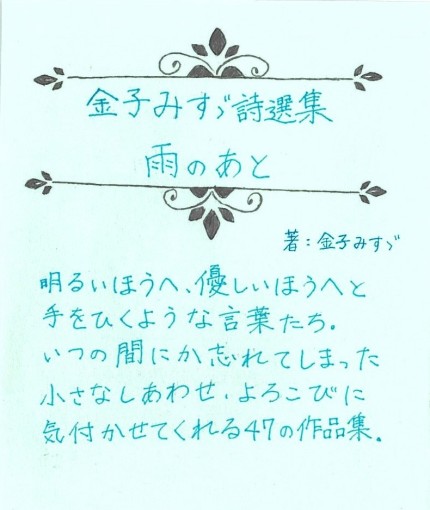 金子みすゞ詩選集
雨のあと
著：金子みすゞ
明るいほうへ、優しいほうへと
手をひくような言葉たち。
いつの間にか忘れてしまった
小さなしあわせ、よろこびに
気付かせてくれる47の作品集。